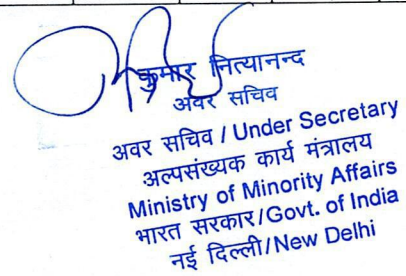 कुमार नित्यानन्द
अवर सचिव
अवर सचिव / Under Secretary
अल्पसंख्यक कार्य मंत्रालय
Ministry of Minority Affairs
भारत सरकार/Govt. of India
नई दिल्ली/New Delhi